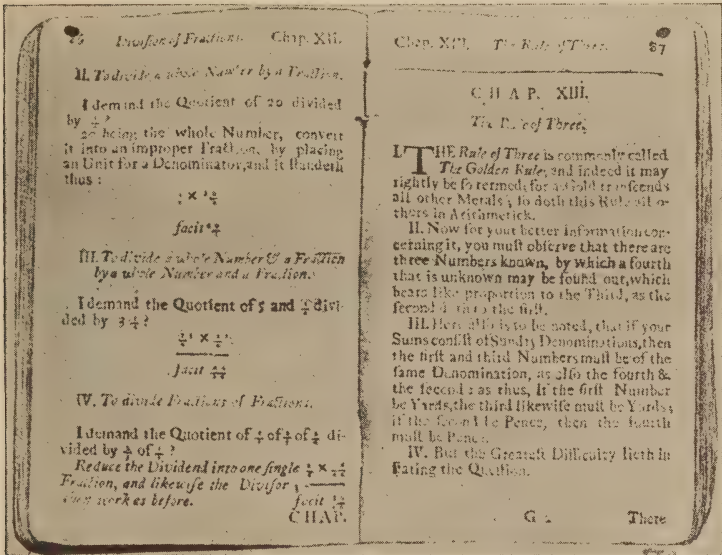 Division of Fractions. Chap. XII.
II. To divide a whole Number by a Fraction.
I demand the Quotient of 20 divided
by
20 being the whole Number, convert
it into an improper Fraction, by placing
an Unit for a Denominator, and it ſtandeth
thus :
facit
III. To divide a whole Number & a Fraction
by a whole Number and a Fraction.
I demand the Quotient of 5 and divi-
ded by 3 ?
facit
IV. To divide Fractions of Fractions.
I demand the Quotient of of of di-
vided by of ?
Reduce the Dividend into one ſingle
Fraction, and likewiſe the Diviſor
then work as before. facit
CHAP.
Chap. XIII. The Rule of Three. 87
CHAP. XIII.
The Rule of Three.
I. THE Rule of Three is commonly called
The Golden Rule, and indeed it may
rightly be ſo termed; for as Gold tranſcends
all other Metals; ſo doth this Rule all o-
thers in Arithmetick.
II. Now for your better Information con-
cerning it, you muſt obſerve that there are
three Numbers known, by which a fourth
that is unknown may be found out, which
bears like proportion to the Third, as the
ſecond to the firſt.
III. Here alſo is to be noted, that if your
Sums conſiſt of Sundry Denominations, then
the firſt and third Numbers muſt be of the
ſame Denomination, as alſo the fourth &
the ſecond : as thus, If the firſt Number
be Yards, the third likewiſe muſt be Yards;
if the ſecond be Pence, then the fourth
muſt be Pence.
IV. But the Greateſt Difficulty lieth in
ſtating the Queſtion.
G There